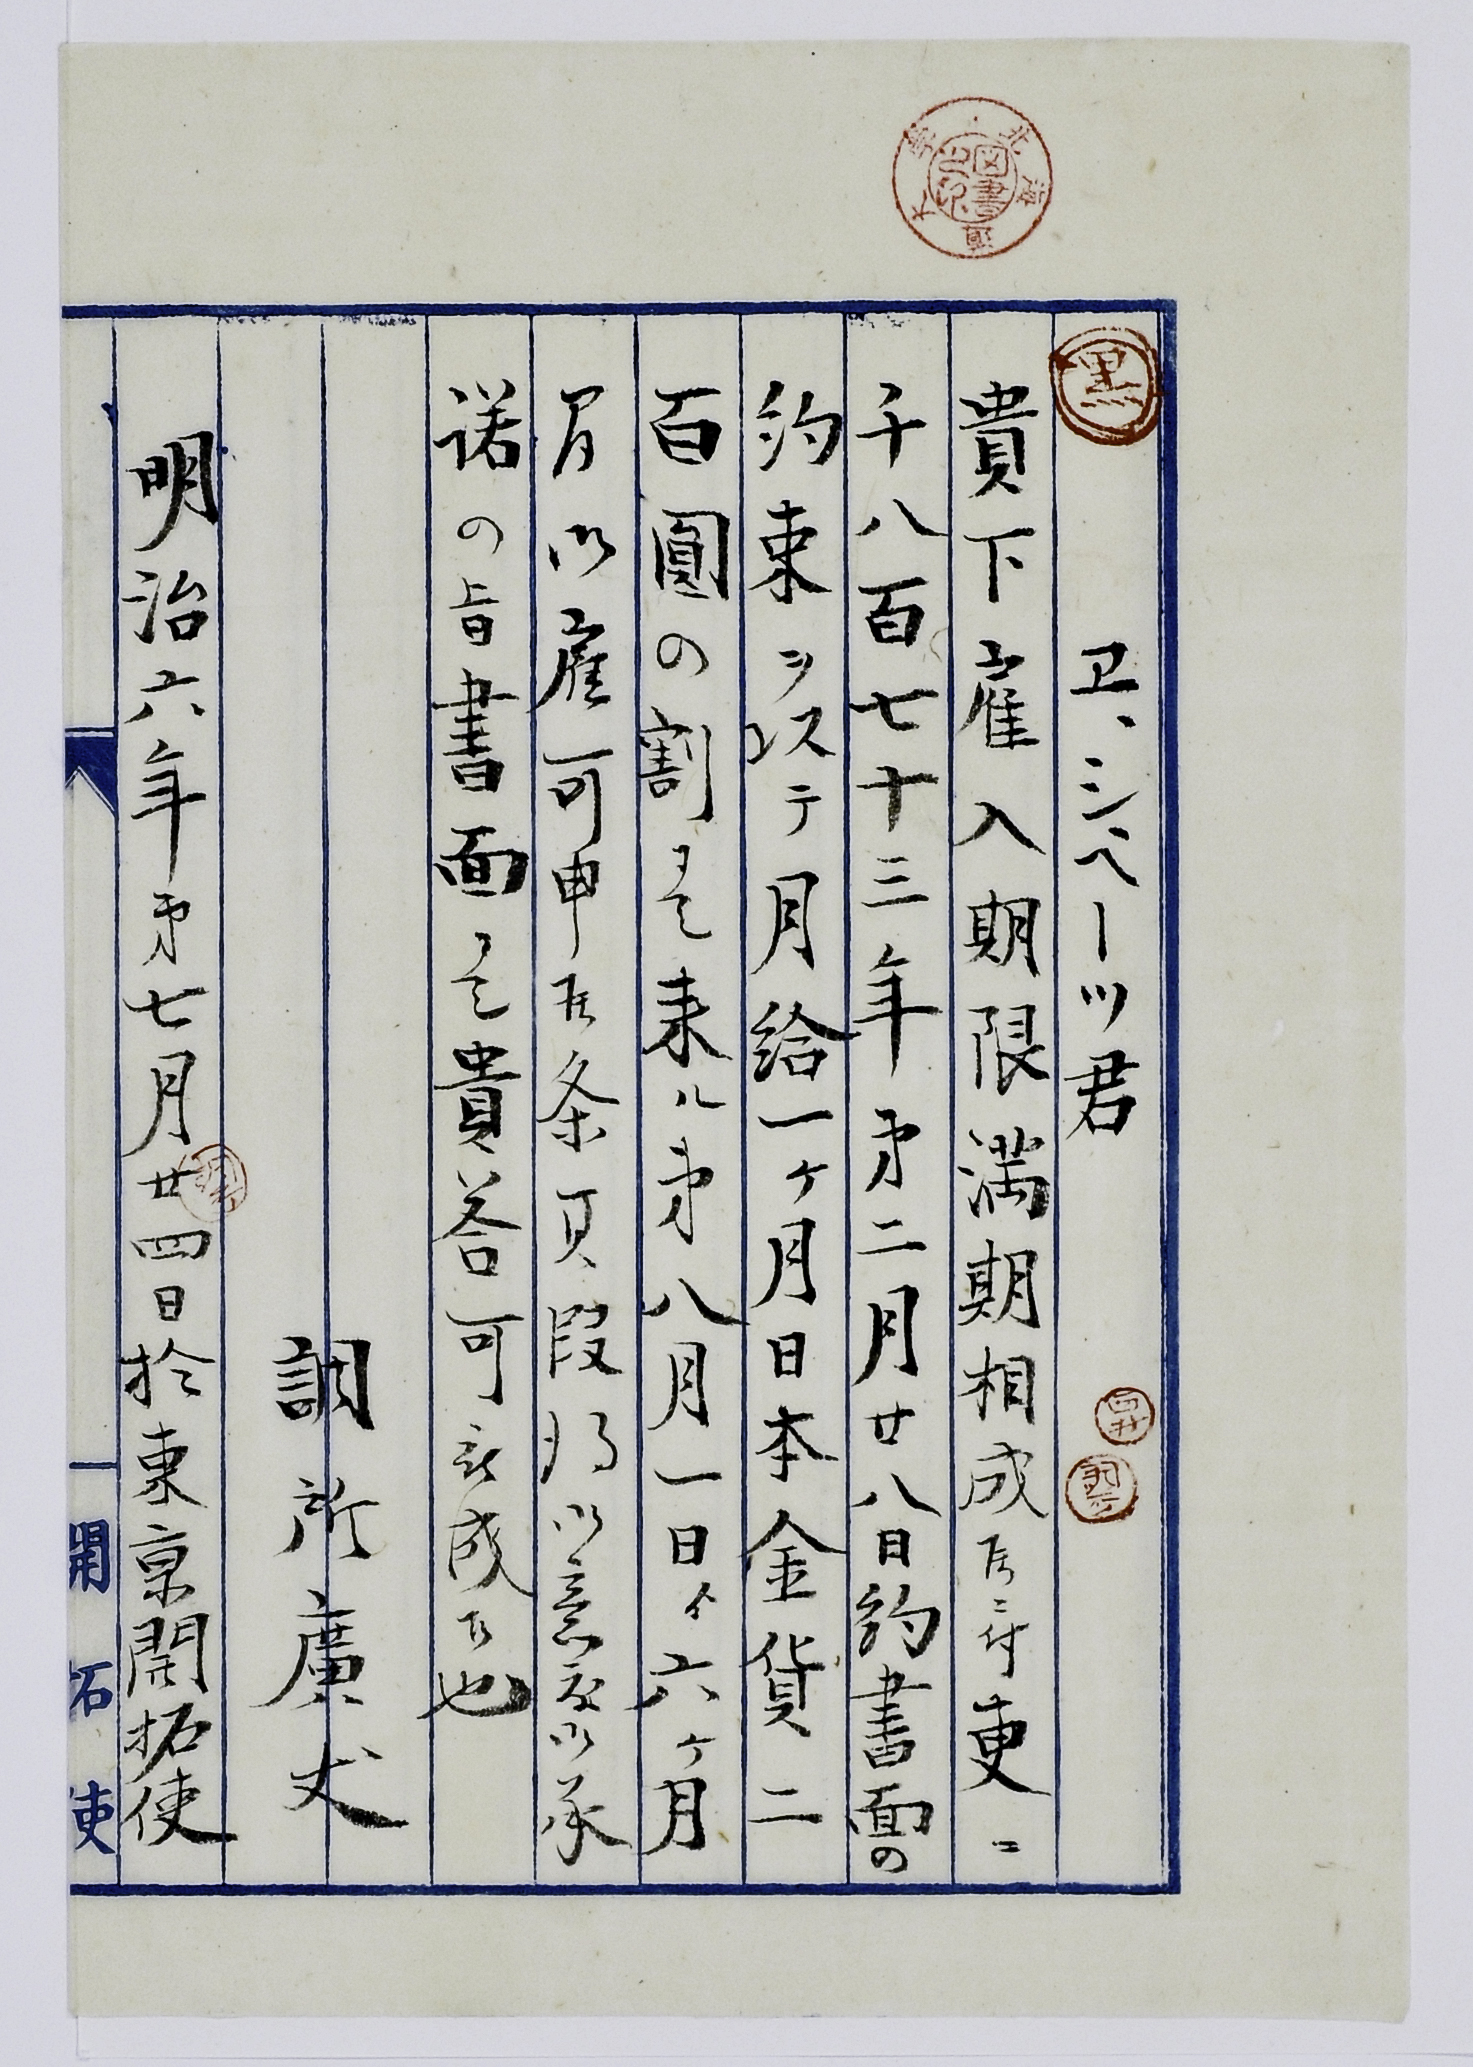 黒
ヱ、シベーツ君
貴下雇入期限満期相成候ニ付更ニ
千八百七十三年第二月廿八日約書面の
約束ヲステ月給一ケ月日本金貨二
百圓の割を以来ル第八月一日ゟ六ケ月
間御雇可申候条其段得御意度御承
諾の旨書面を以貴答可被成候也
調所廣丈
明治六年第七月廿四日於東京開拓使
開拓使
北海道大学
図書